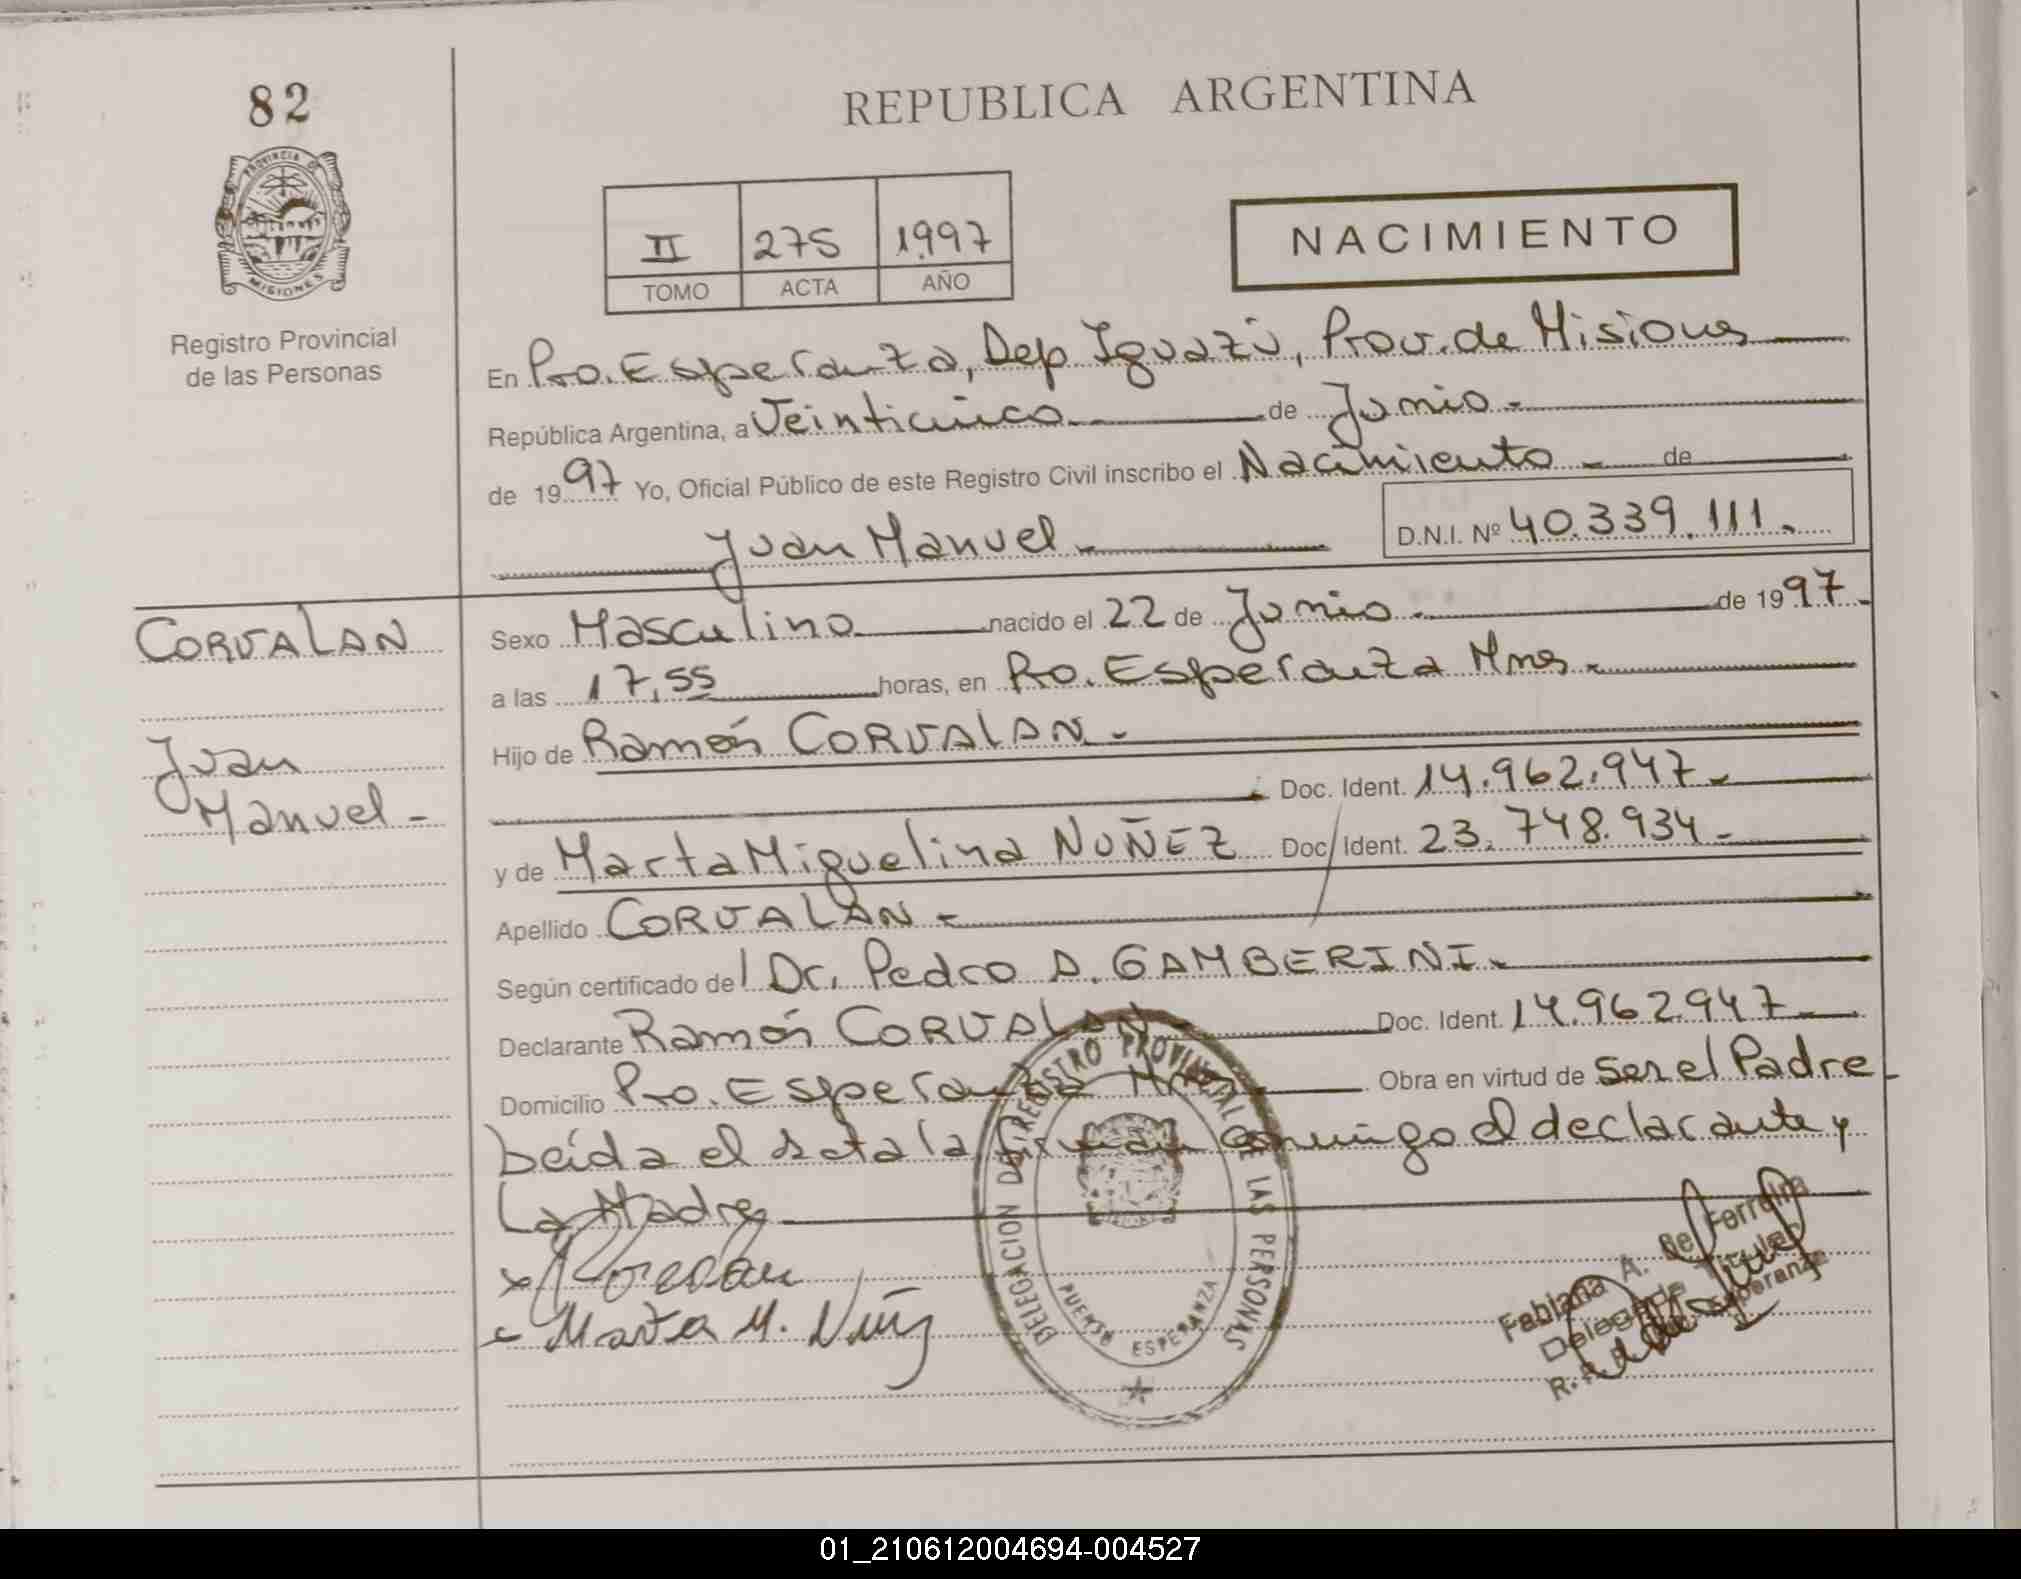 82
PROVINCIA DE
MISIONES
Registro Provincial
de las Personas
REPUBLICA ARGENTINA
II 275 1.997
TOMO ACTA AÑO
NACIMIENTO
En Pto. Esperanza, Dep Iguazú, Prov. de Misiones
República Argentina, a Veinticinco de Junio.-
de 1997 Yo, Oficial Público de este Registro Civil inscribo el Nacimiento - de
Juan Manuel.- D.N.I. Nº 40.339.111.-
CORVALAN
Juan
Manuel -
Sexo Masculino nacido el 22 de Junio.- de 1997.-
a las 17,55 horas, en Pto. Esperanza Mnes.-
Hijo de Ramón CORVALAN.-
Doc. Ident. 14.962.947.-
y de Marta Miguelina NUÑEZ Doc/Ident. 23.748.934.-
Apellido CORVALAN.-
Según certificado del Dr. Pedro A. GAMBERINI.-
Declarante Ramón CORVALAN.- Doc. Ident. 14.962.947.-
Domicilio Pto. Esperanza Mnes. Obra en virtud de ser el Padre -
Leída el acta la firman conmigo el declarante y
La Madre
x Corvalan
x Marta M. Nuñez
DELEGACION DEL REGISTRO PROVINCIAL DE LAS PERSONAS
PUERTO ESPERANZA
Fabiana A. de Ferreira
Delegada Titular
Esperanza
01_210612004694-004527